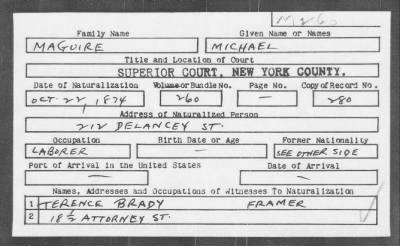 M260
Family Name Given Name or Names
MAGUIRE MICHAEL
Title and Location of Court
SUPERIOR COURT, NEW YORK COUNTY.
Date of Naturalization Volume or Bundle No. Page No. Copy of Record No.
OCT. 22, 1874 260 — 280
Address of Naturalized Person
212 DELANCEY ST.
Occupation Birth Date or Age Former Nationality
LABORER — SEE OTHER SIDE
Port of Arrival in the United States Date of Arrival
— —
Names, Addresses and Occupations of Witnesses To Naturalization
1 TERENCE BRADY FRAMER
2 18 1/2 ATTORNEY ST.